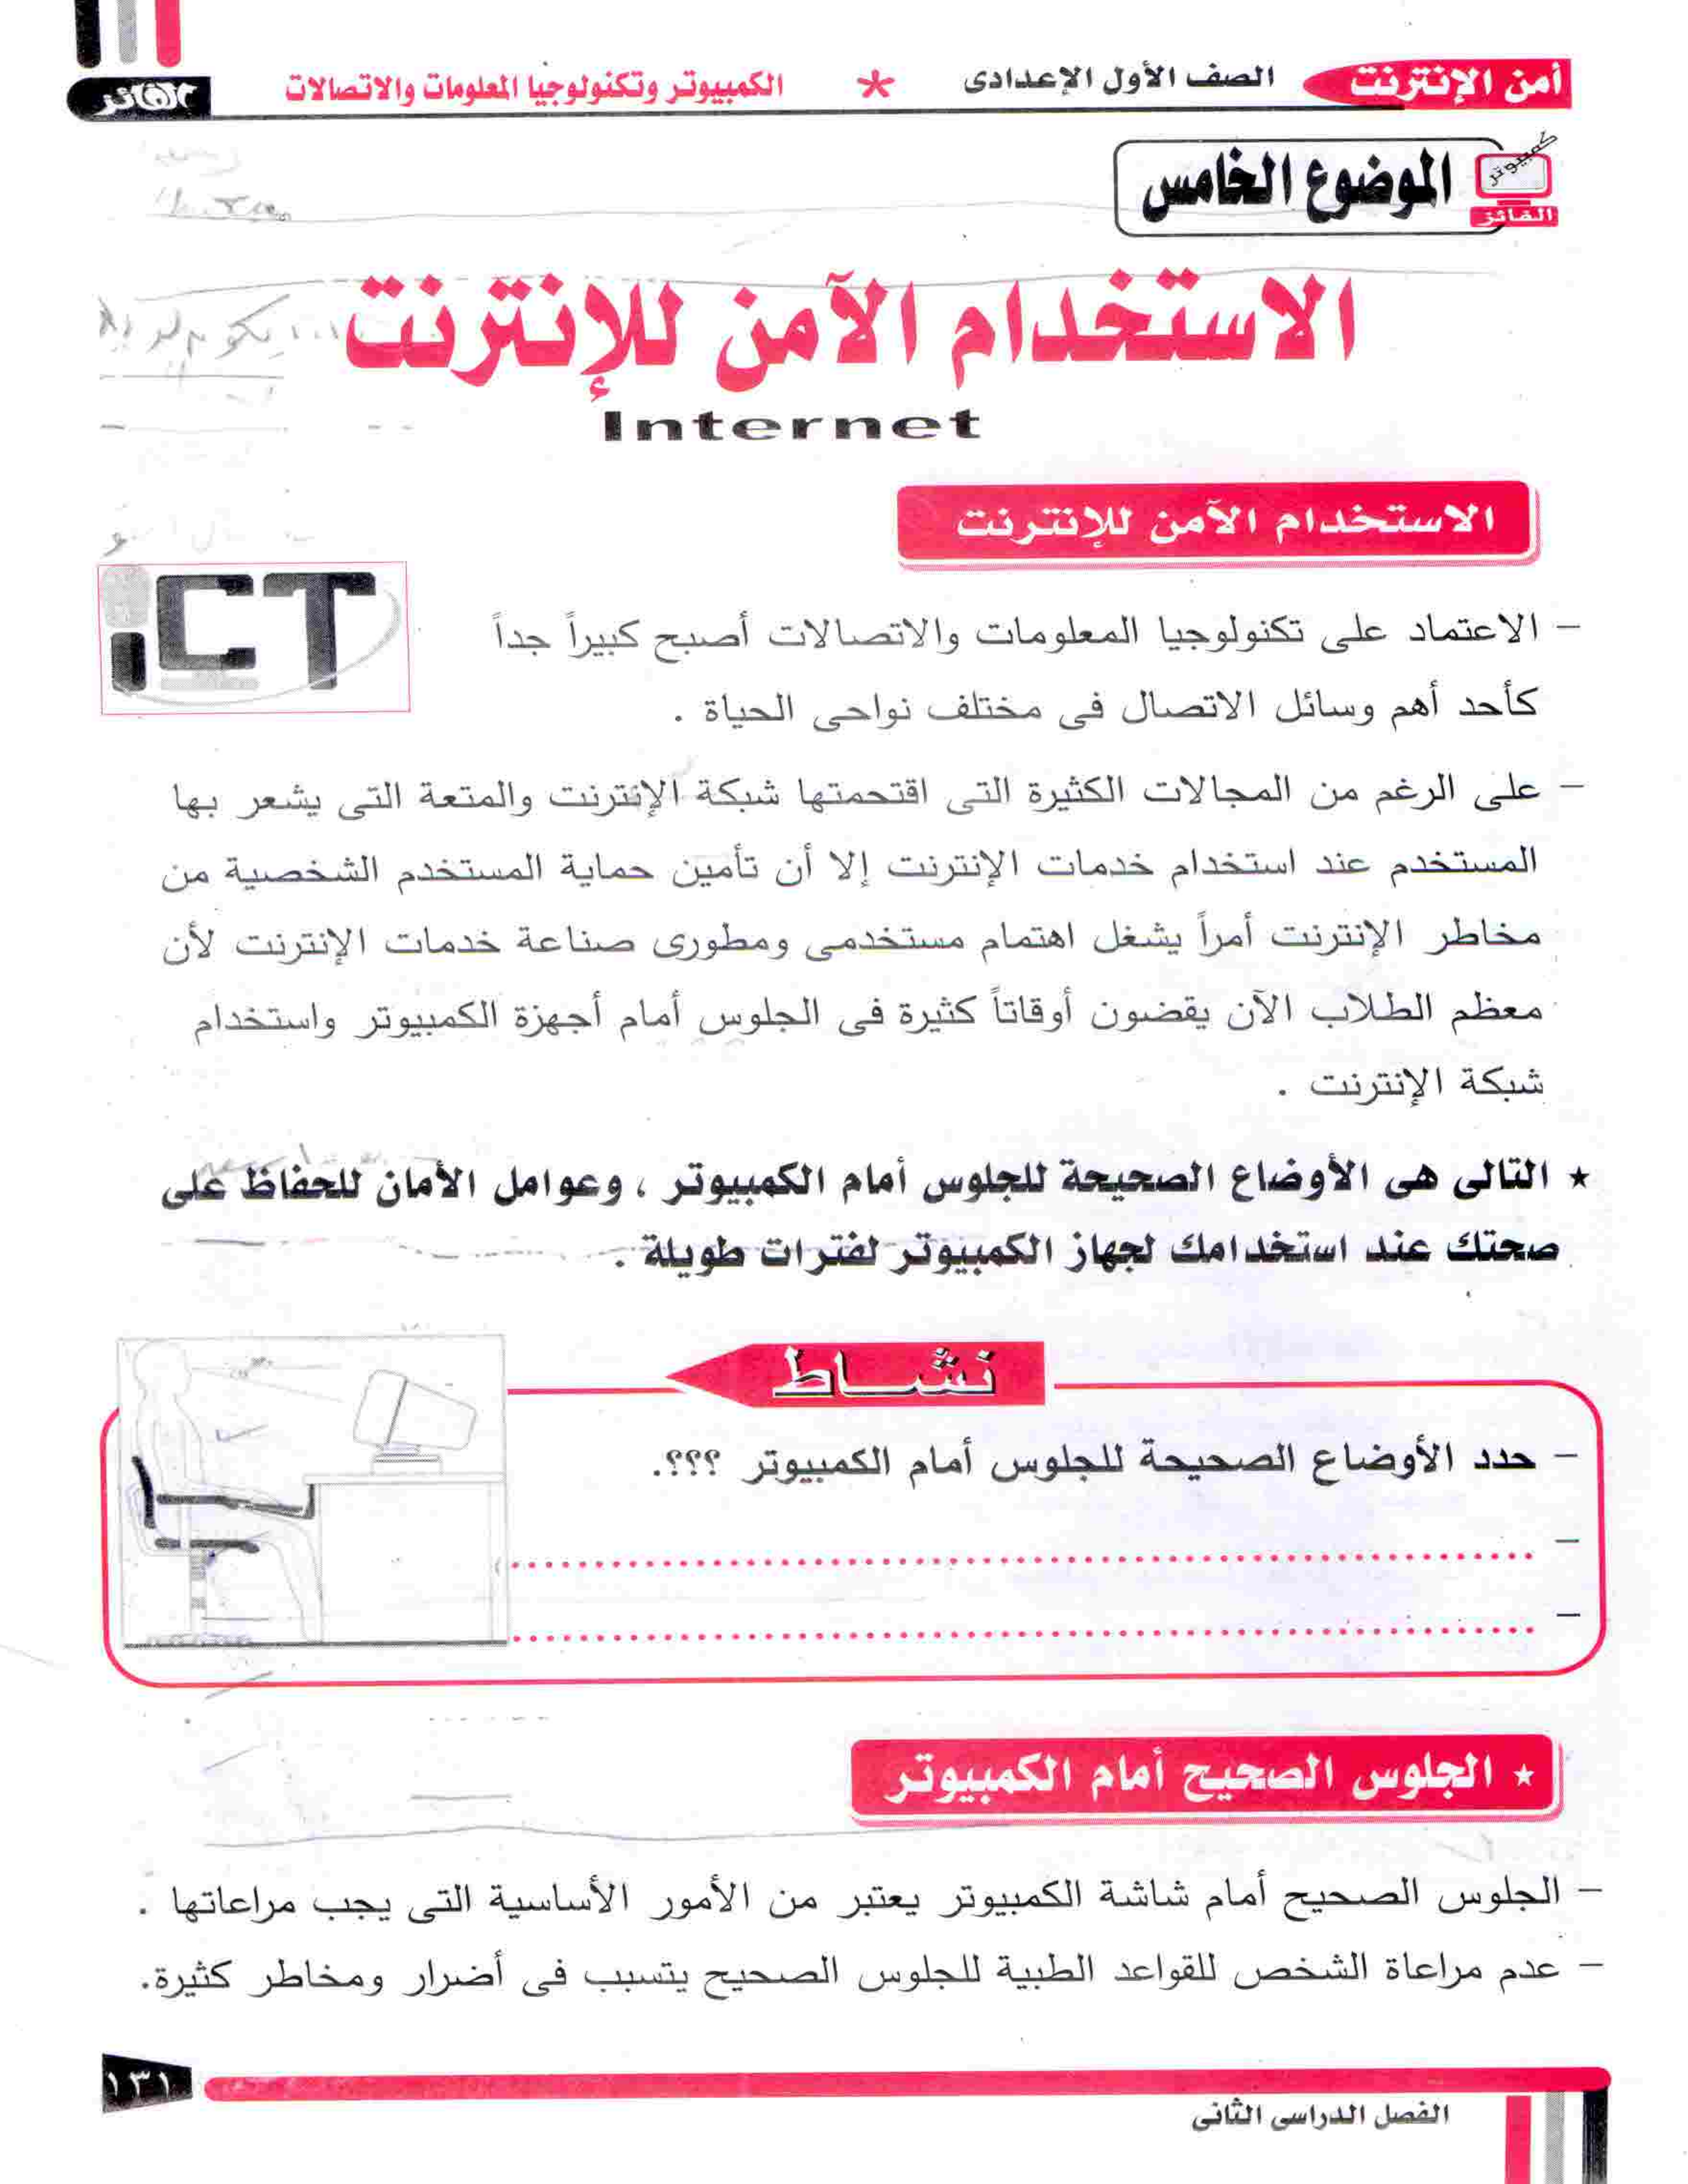 أمن الإنترنت
الصف الأول الإعدادى * الكمبيوتر وتكنولوجيا المعلومات والاتصالات
الفائز
كمبيوتر
الفائز
الموضوع الخامس
الاستخدام الآمن للإنترنت
Internet
الاستخدام الآمن للإنترنت
iCT
- الاعتماد على تكنولوجيا المعلومات والاتصالات أصبح كبيراً جداً
كأحد أهم وسائل الاتصال فى مختلف نواحى الحياة .
- على الرغم من المجالات الكثيرة التى اقتحمتها شبكة الإنترنت والمتعة التى يشعر بها
المستخدم عند استخدام خدمات الإنترنت إلا أن تأمين حماية المستخدم الشخصية من
مخاطر الإنترنت أمراً يشغل اهتمام مستخدمى ومطورى صناعة خدمات الإنترنت لأن
معظم الطلاب الآن يقضون أوقاتاً كثيرة فى الجلوس أمام أجهزة الكمبيوتر واستخدام
شبكة الإنترنت .
★ التالى هى الأوضاع الصحيحة للجلوس أمام الكمبيوتر ، وعوامل الأمان للحفاظ على
صحتك عند استخدامك لجهاز الكمبيوتر لفترات طويلة .
نشـــاط
- حدد الأوضاع الصحيحة للجلوس أمام الكمبيوتر ؟؟؟.
★ الجلوس الصحيح أمام الكمبيوتر
- الجلوس الصحيح أمام شاشة الكمبيوتر يعتبر من الأمور الأساسية التى يجب مراعاتها .
- عدم مراعاة الشخص للقواعد الطبية للجلوس الصحيح يتسبب فى أضرار ومخاطر كثيرة.
١٣١
الفصل الدراسى الثانى